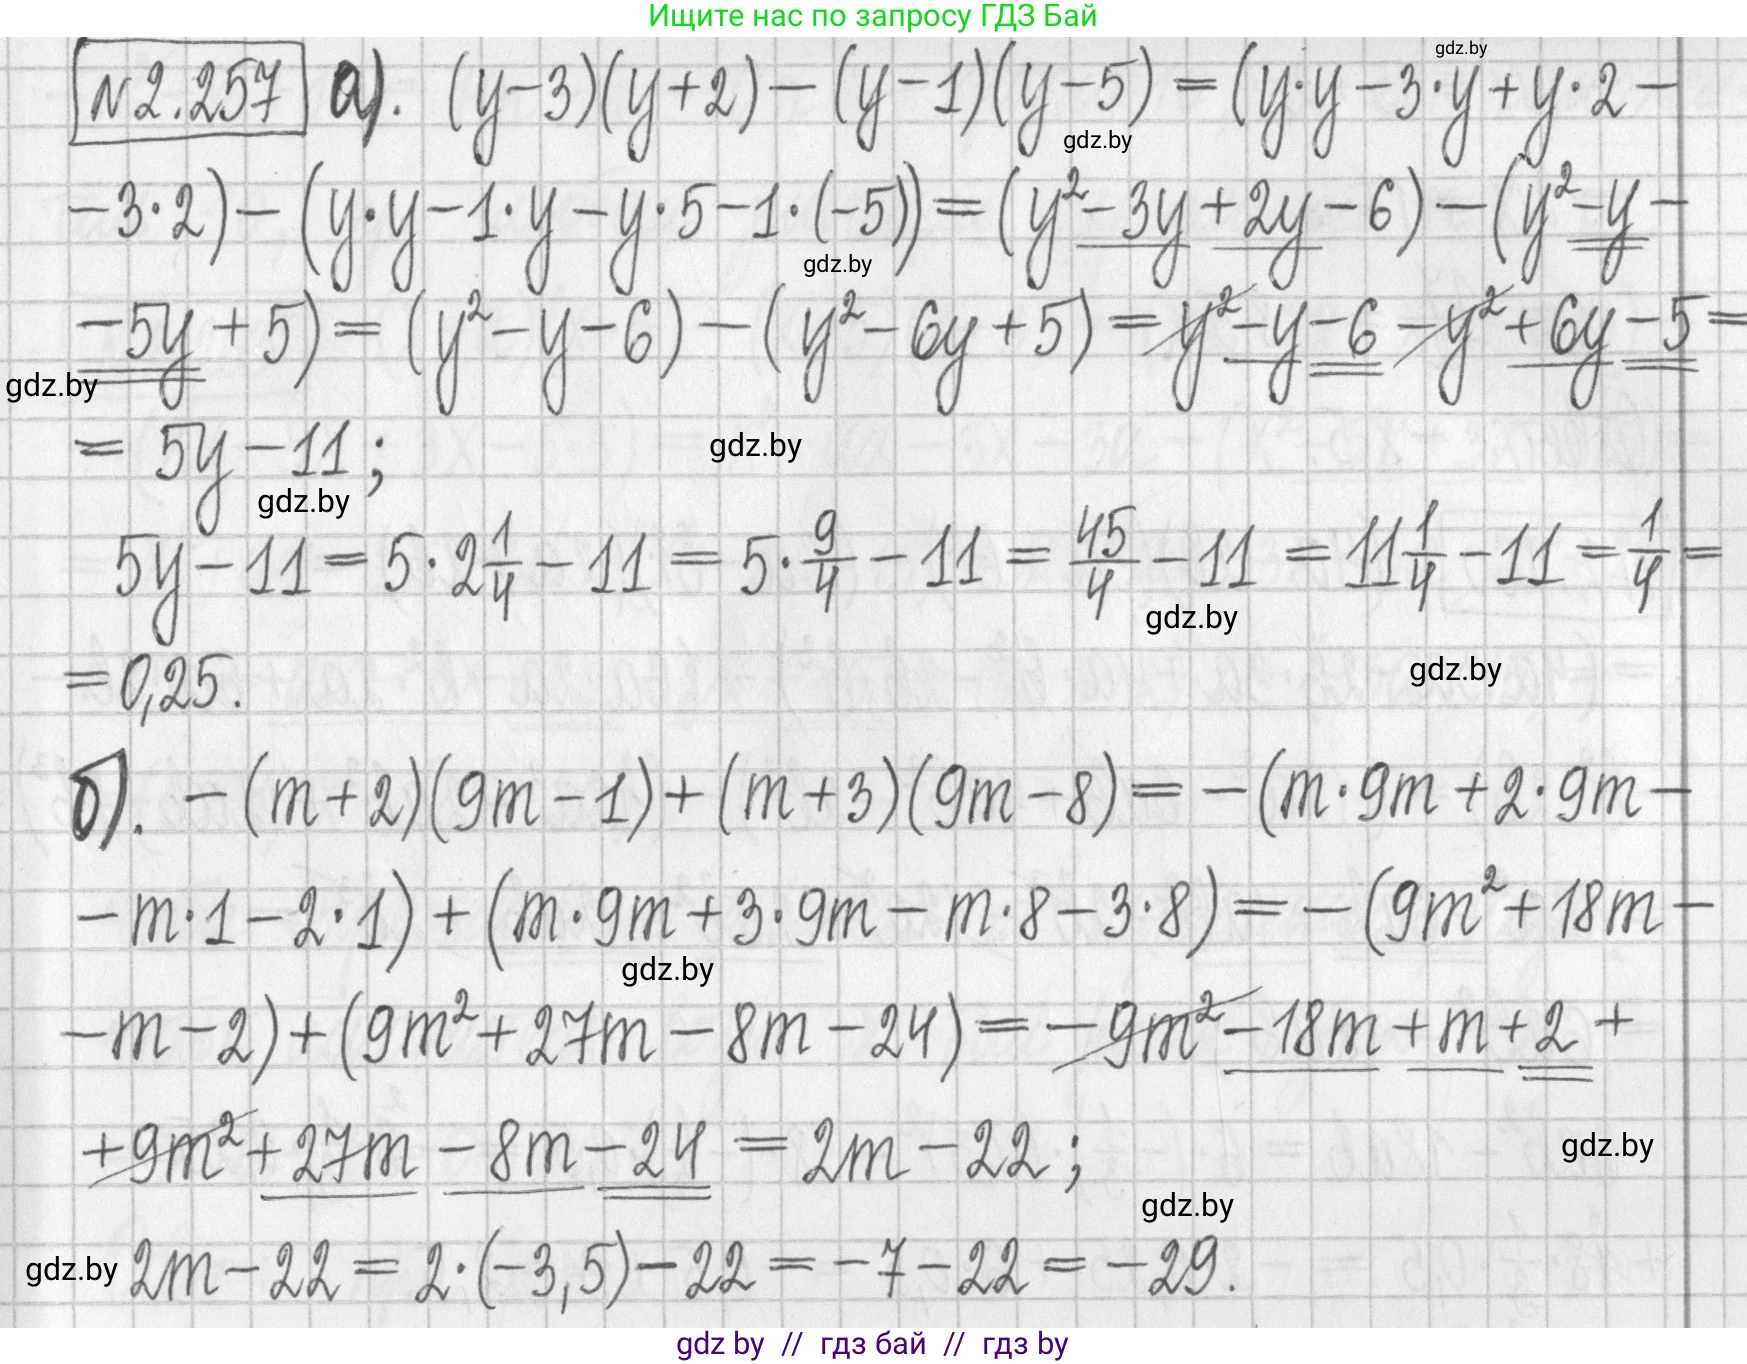 Ищите нас по запросу ГДЗ Бай
gdz.by
№2.257 а). (y-3)(y+2)-(y-1)(y-5)=(y·y-3·y+y·2-
gdz.by
-3·2)-(y·y-1·y-y·5-1·(-5))=(y²-3y+2y-6)-(y²-y-
gdz.by
-5y+5)=(y²-y-6)-(y²-6y+5)=y²-y-6-y²+6y-5=
gdz.by
=5y-11;
gdz.by
gdz.by
5y-11=5·2 1/4-11=5·9/4-11=45/4-11=11 1/4-11=1/4=
gdz.by
=0,25.
gdz.by
б). -(m+2)(9m-1)+(m+3)(9m-8)=-(m·9m+2·9m-
-m·1-2·1)+(m·9m+3·9m-m·8-3·8)=-(9m²+18m-
gdz.by
-m-2)+(9m²+27m-8m-24)=-9m²-18m+m+2+
+9m²+27m-8m-24=2m-22;
gdz.by
gdz.by
gdz.by
2m-22=2·(-3,5)-22=-7-22=-29.
gdz by // гдз бай // гдз by